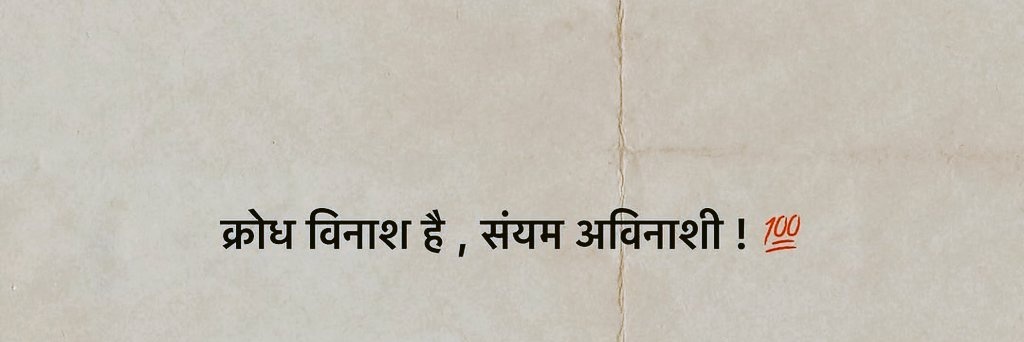 क्रोध विनाश है , संयम अविनाशी ! 💯